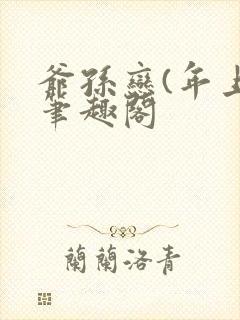 爺孫戀(年上
筆趣閣
蘭蘭洛青